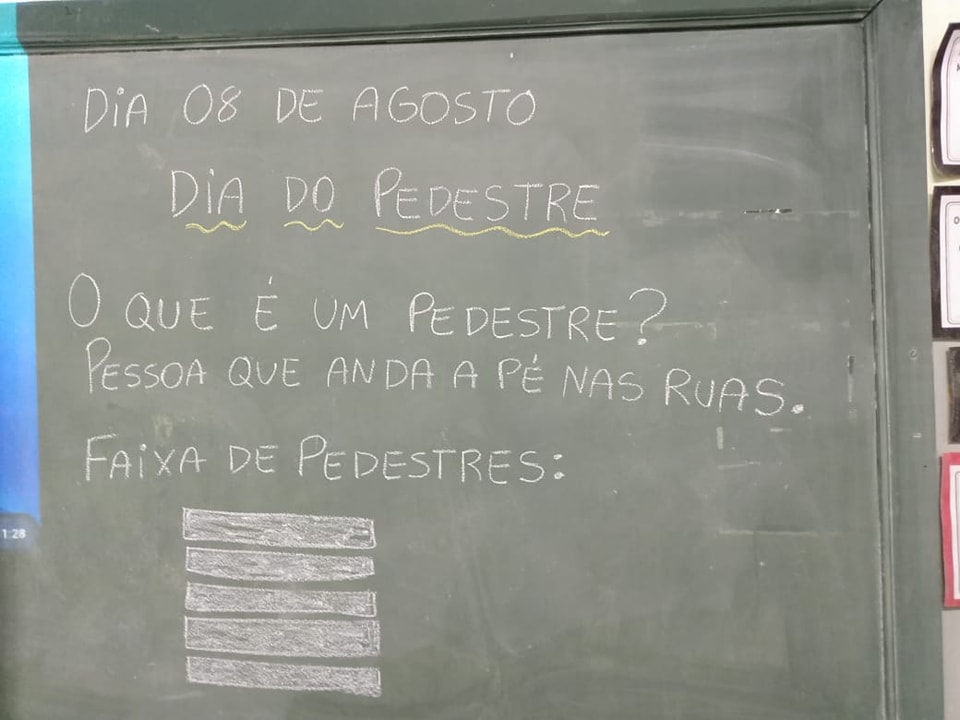 DiA 08 DE AGOSTO
DiA DO PEDESTRE
O QUE É UM PEDESTRE?
PESSOA QUE ANDA A PÉ NAS RUAS.
FAiXA DE PEDESTRES:
1:28